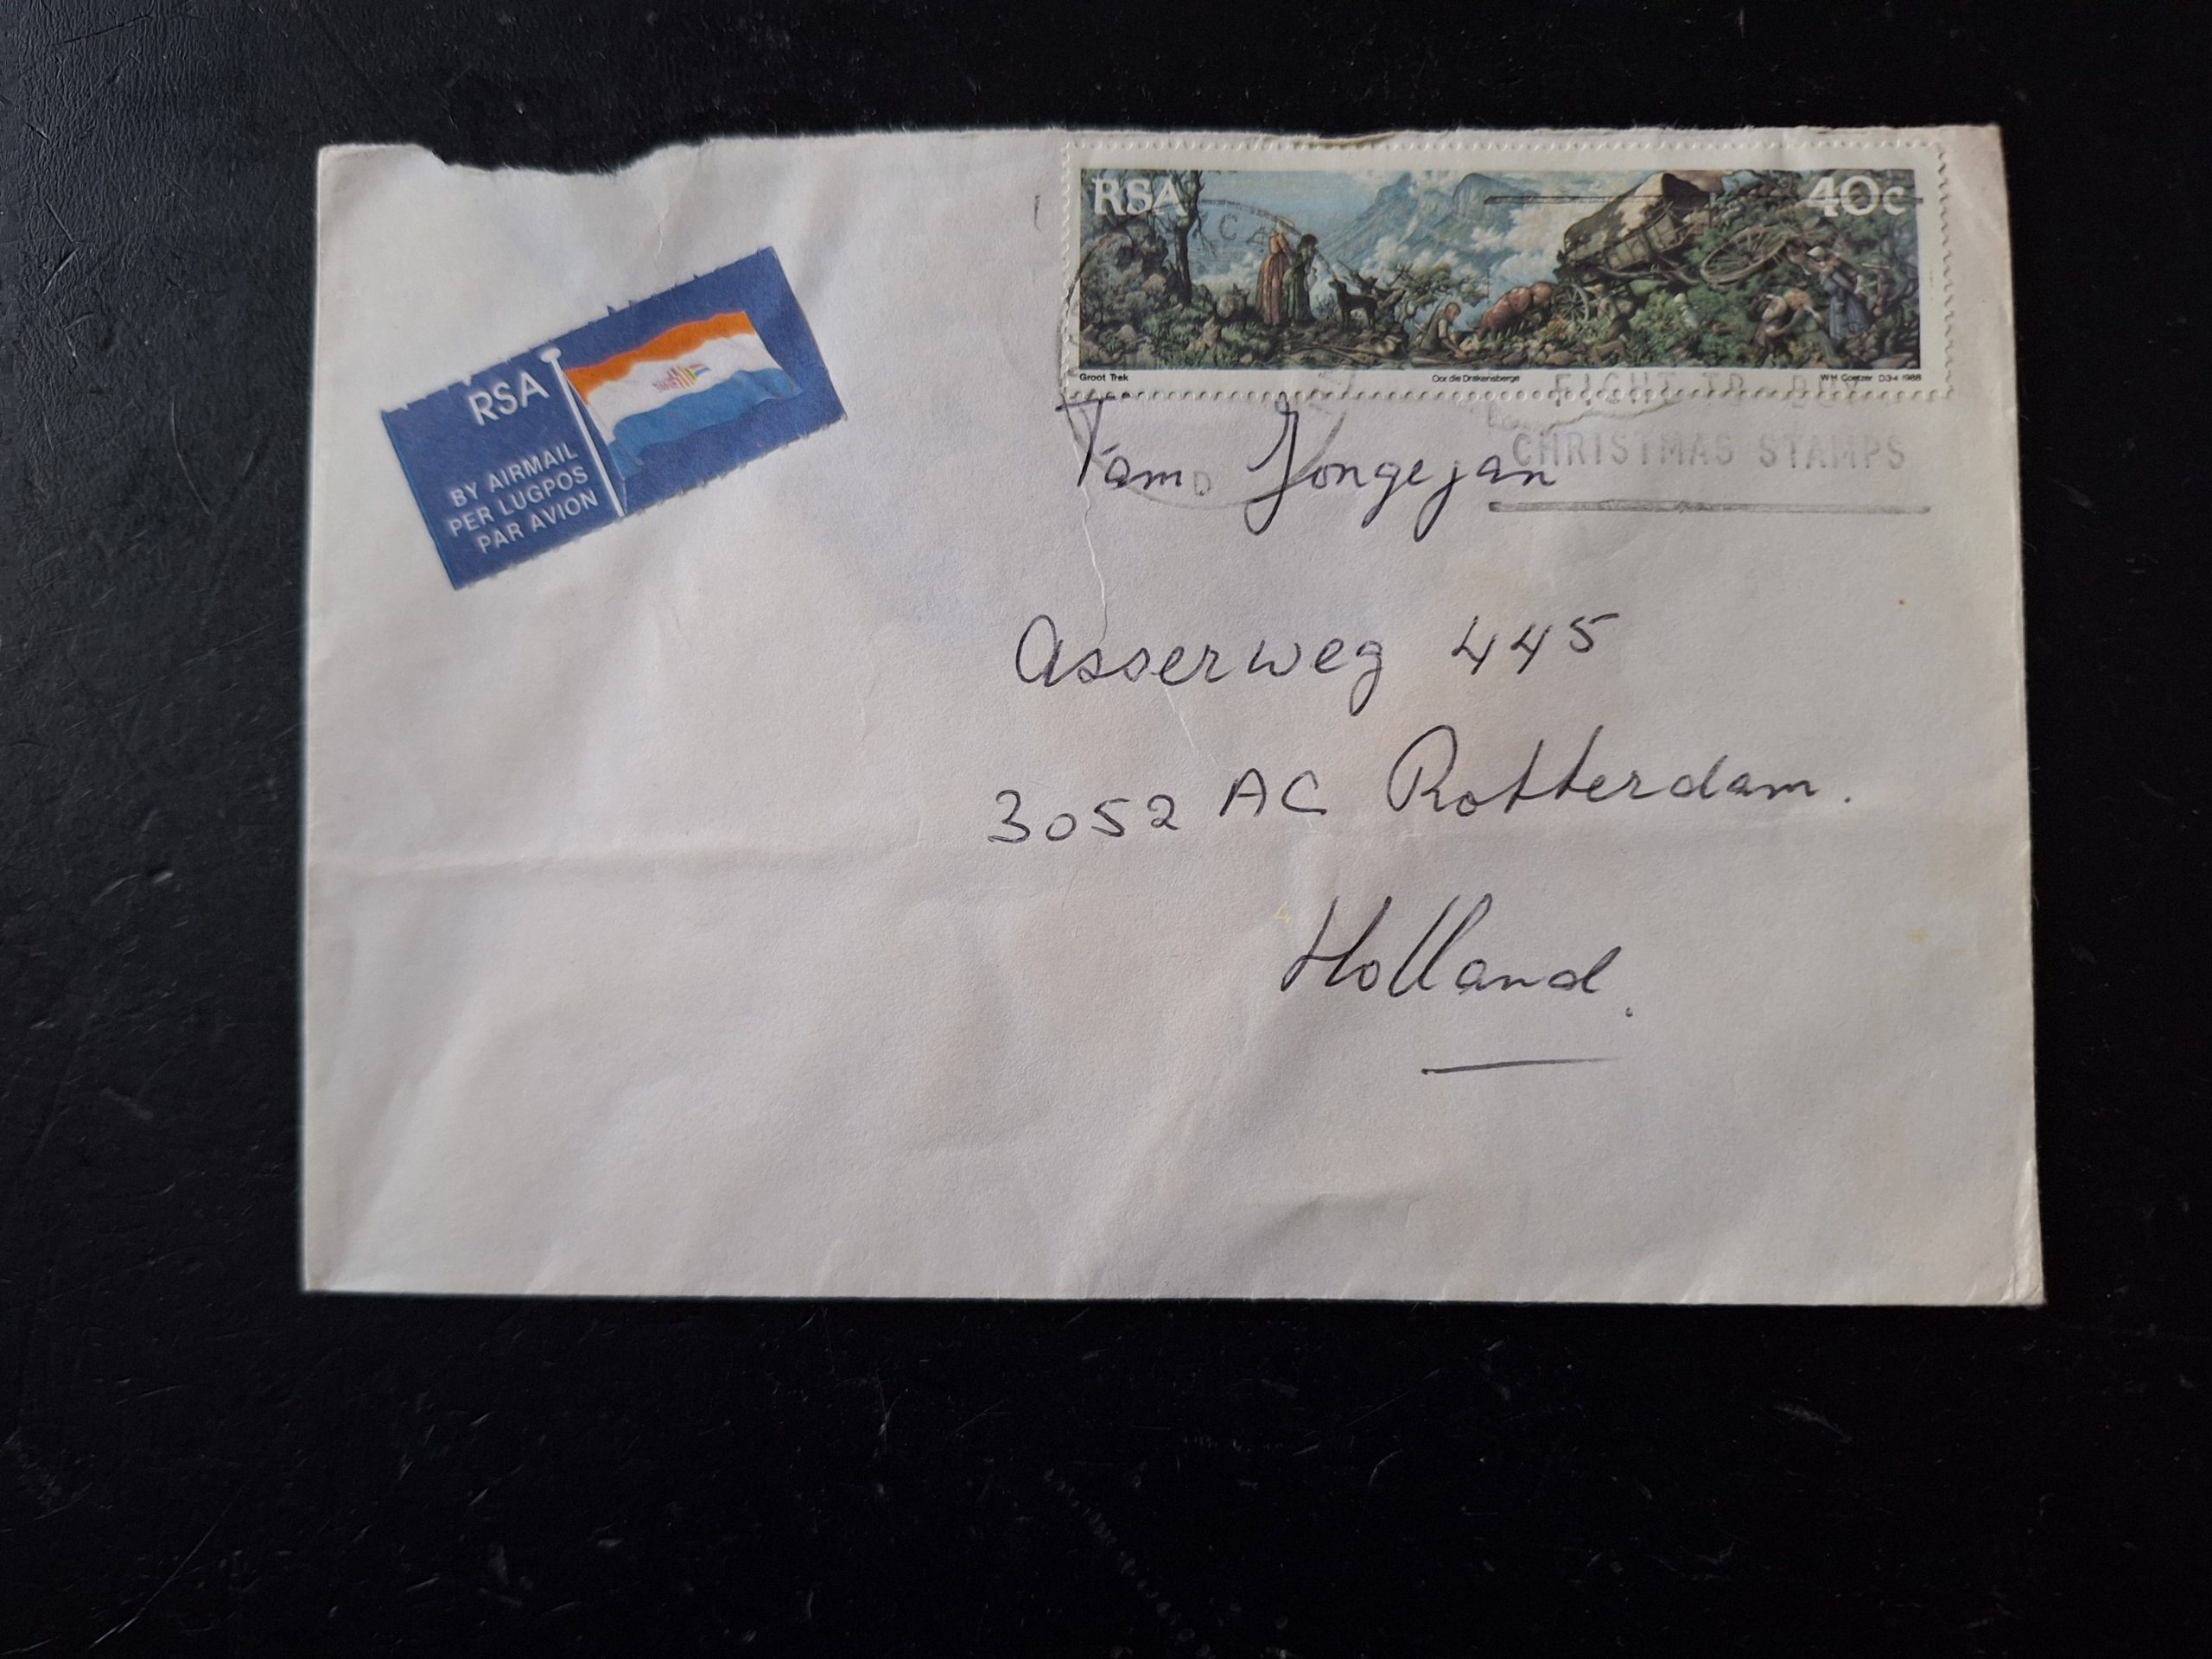 RSA
BY AIRMAIL
PER LUGPOS
PAR AVION
RSA 40c
Groot Trek Oor die Drakensberge WH Coetzer D34 1988
FIGHT TB BUY
CHRISTMAS STAMPS
Tam Jongejan
Asserweg 445
3052 AC Rotterdam.
Holland.